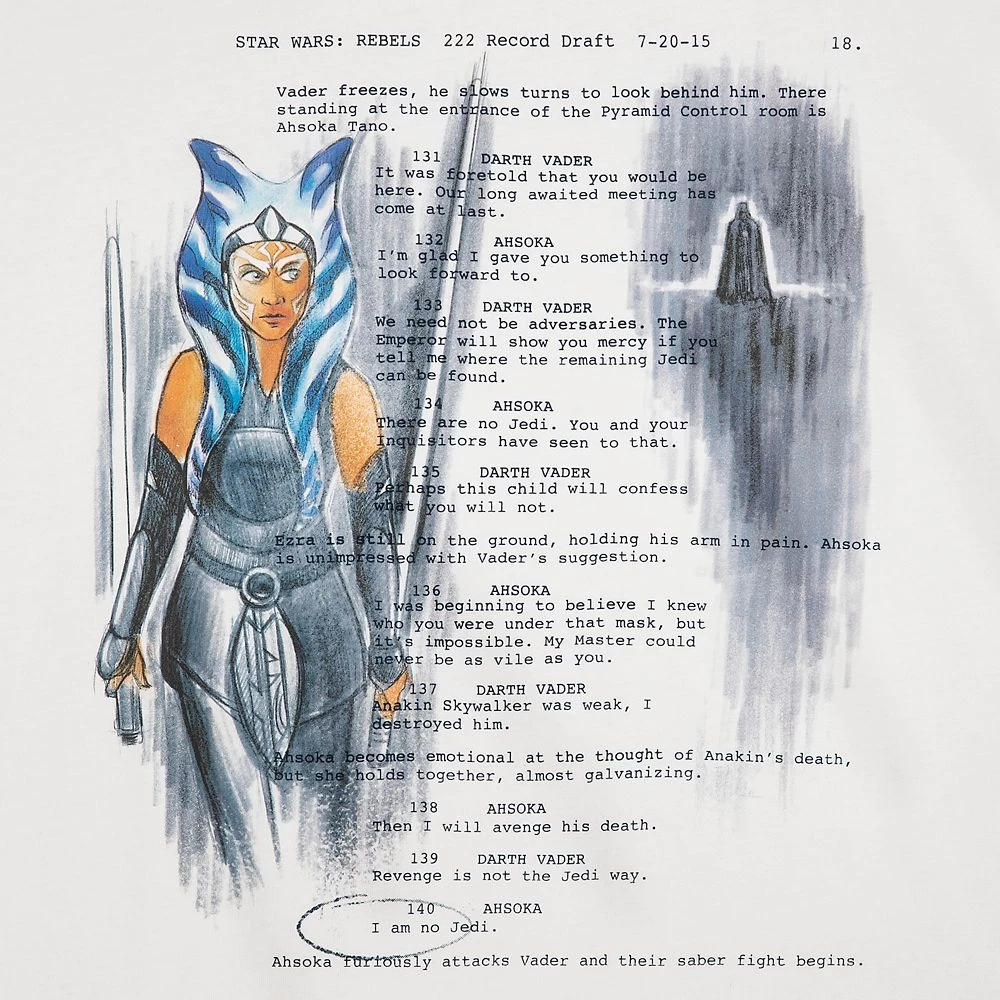 STAR WARS: REBELS 222 Record Draft 7-20-15 18.
Vader freezes, he slows turns to look behind him. There
standing at the entrance of the Pyramid Control room is
Ahsoka Tano.
131 DARTH VADER
It was foretold that you would be
here. Our long awaited meeting has
come at last.
132 AHSOKA
I'm glad I gave you something to
look forward to.
133 DARTH VADER
We need not be adversaries. The
Emperor will show you mercy if you
tell me where the remaining Jedi
can be found.
134 AHSOKA
There are no Jedi. You and your
Inquisitors have seen to that.
135 DARTH VADER
Perhaps this child will confess
what you will not.
Ezra is still on the ground, holding his arm in pain. Ahsoka
is unimpressed with Vader's suggestion.
136 AHSOKA
I was beginning to believe I knew
who you were under that mask, but
it's impossible. My Master could
never be as vile as you.
137 DARTH VADER
Anakin Skywalker was weak, I
destroyed him.
Ahsoka becomes emotional at the thought of Anakin's death,
but she holds together, almost galvanizing.
138 AHSOKA
Then I will avenge his death.
139 DARTH VADER
Revenge is not the Jedi way.
140 AHSOKA
I am no Jedi.
Ahsoka furiously attacks Vader and their saber fight begins.